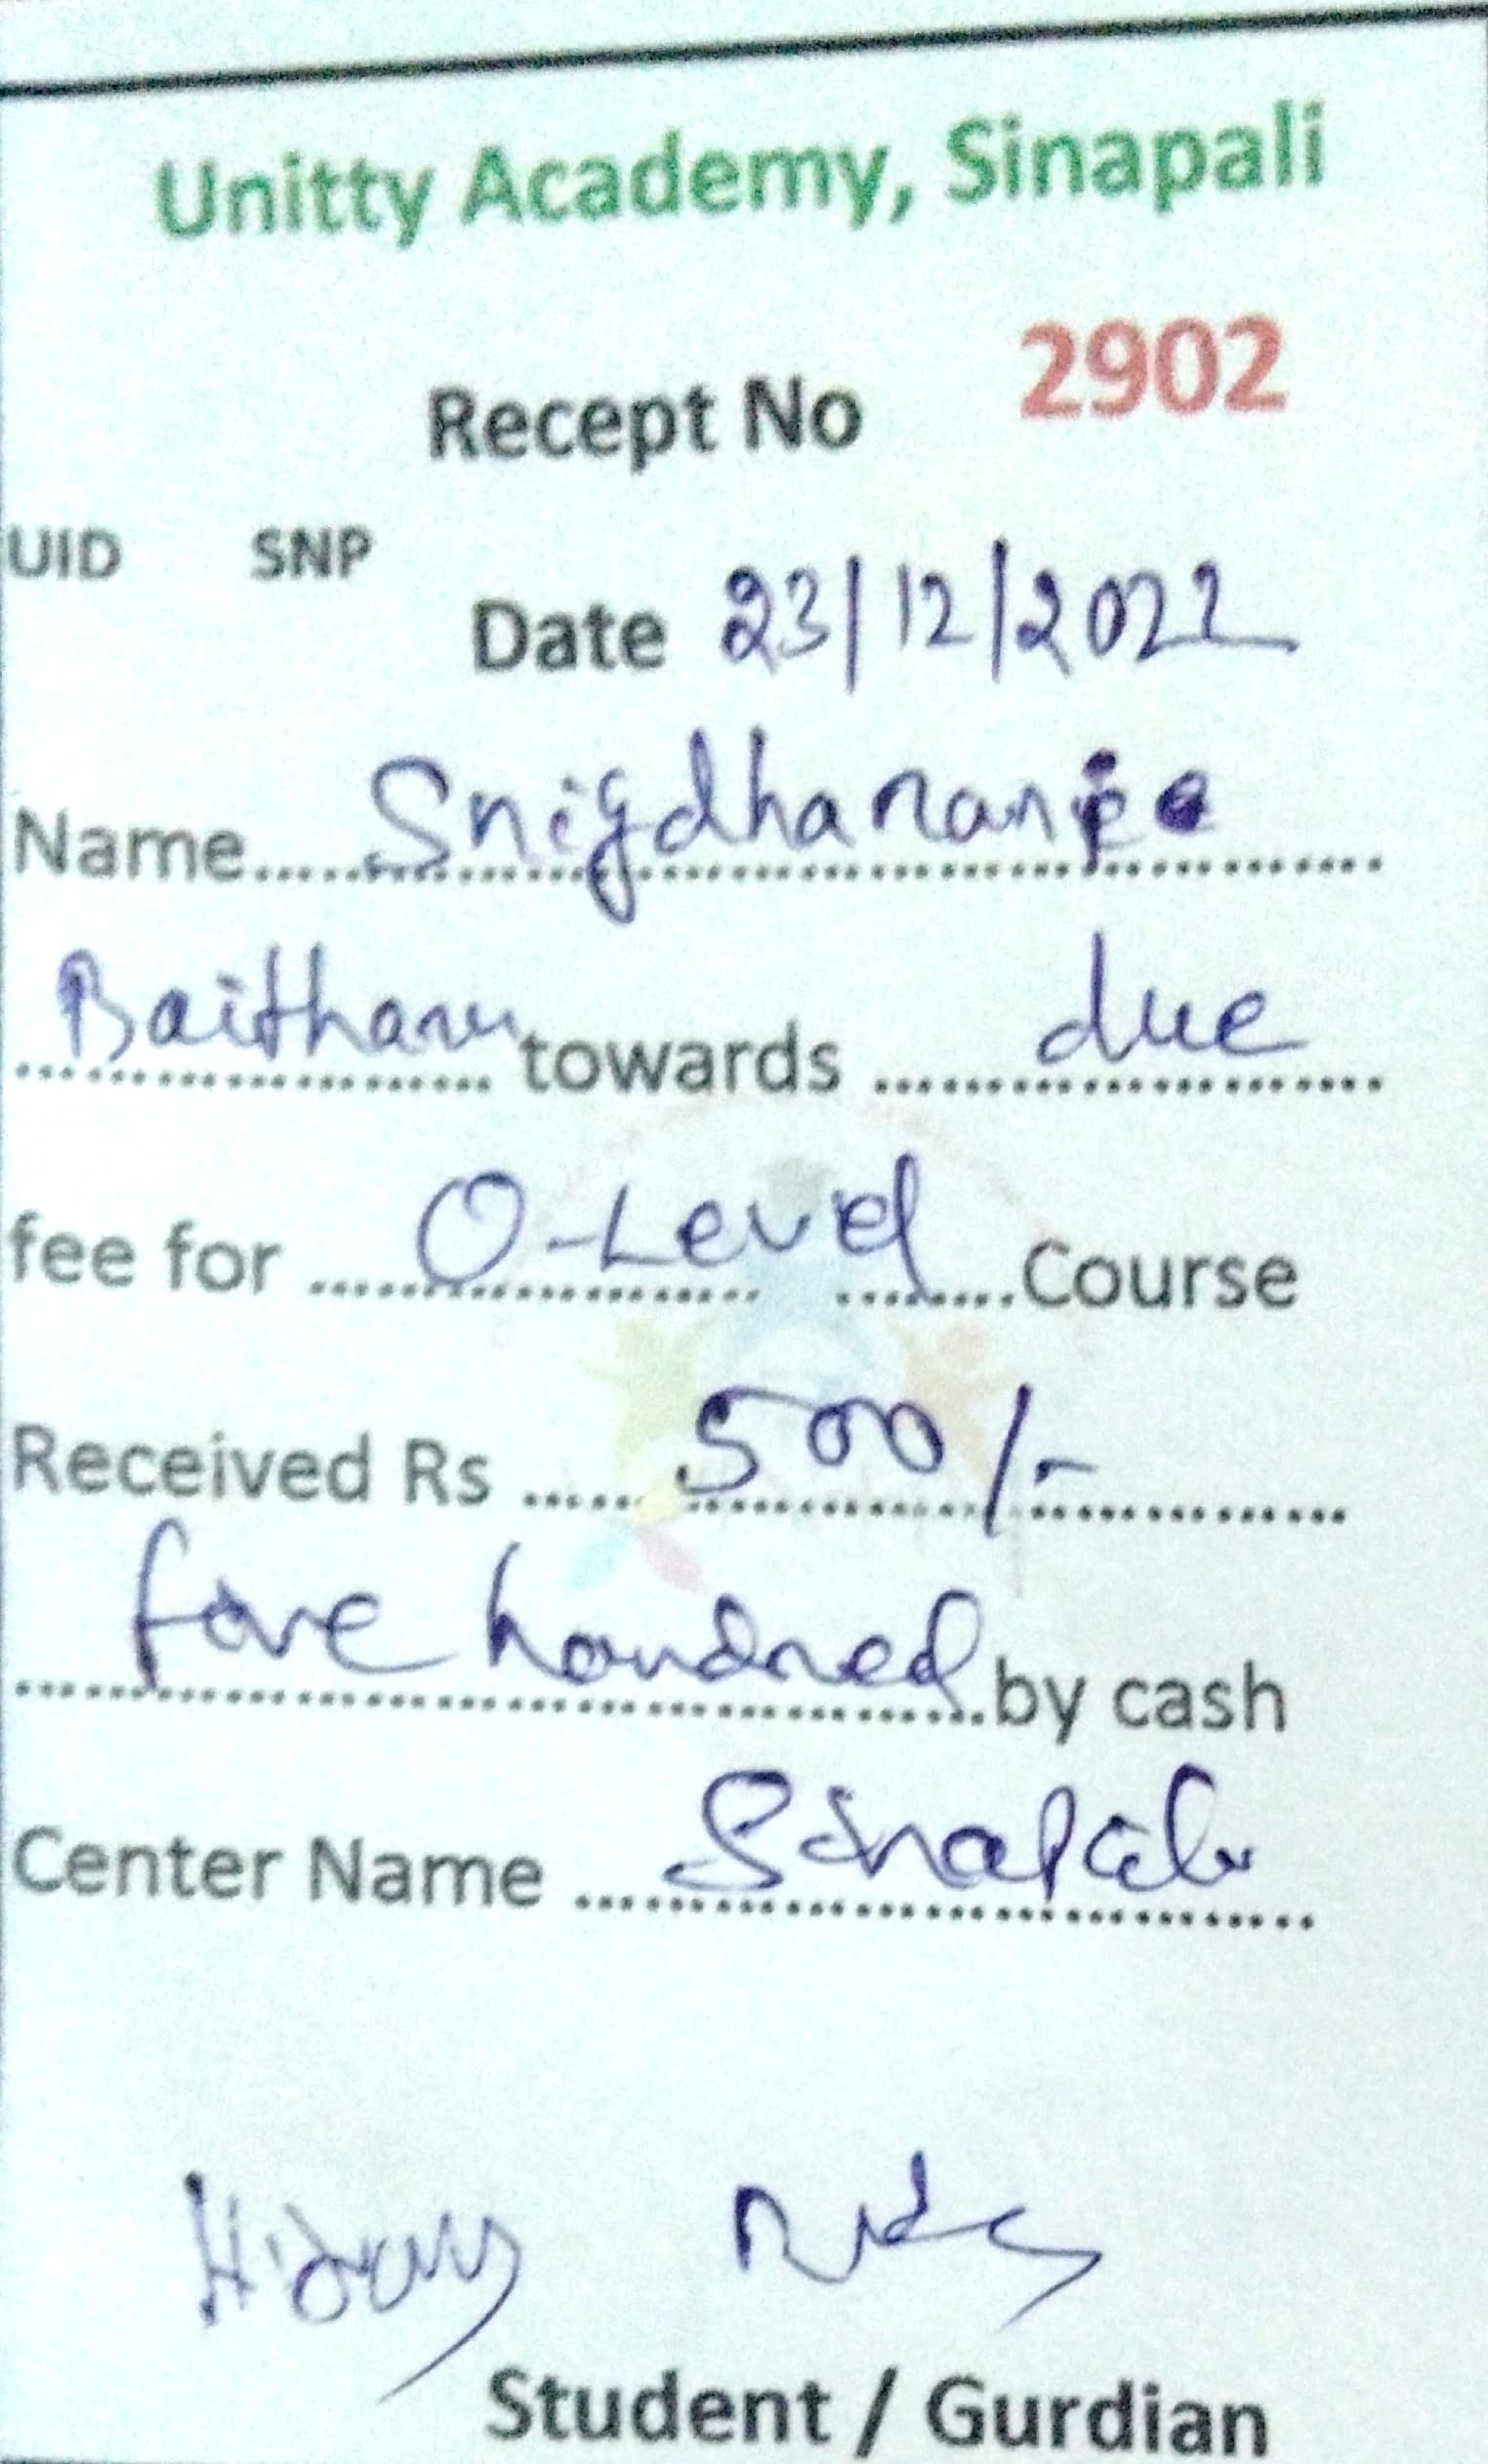 Unitty Academy, Sinapali
Recept No 2902
UID SNP
Date 23/12/2022
Name..........................
Baitharu towards due
fee for O-Level Course
Received Rs 500/-
five hundred by cash
Center Name Sinapali
Student / Gurdian